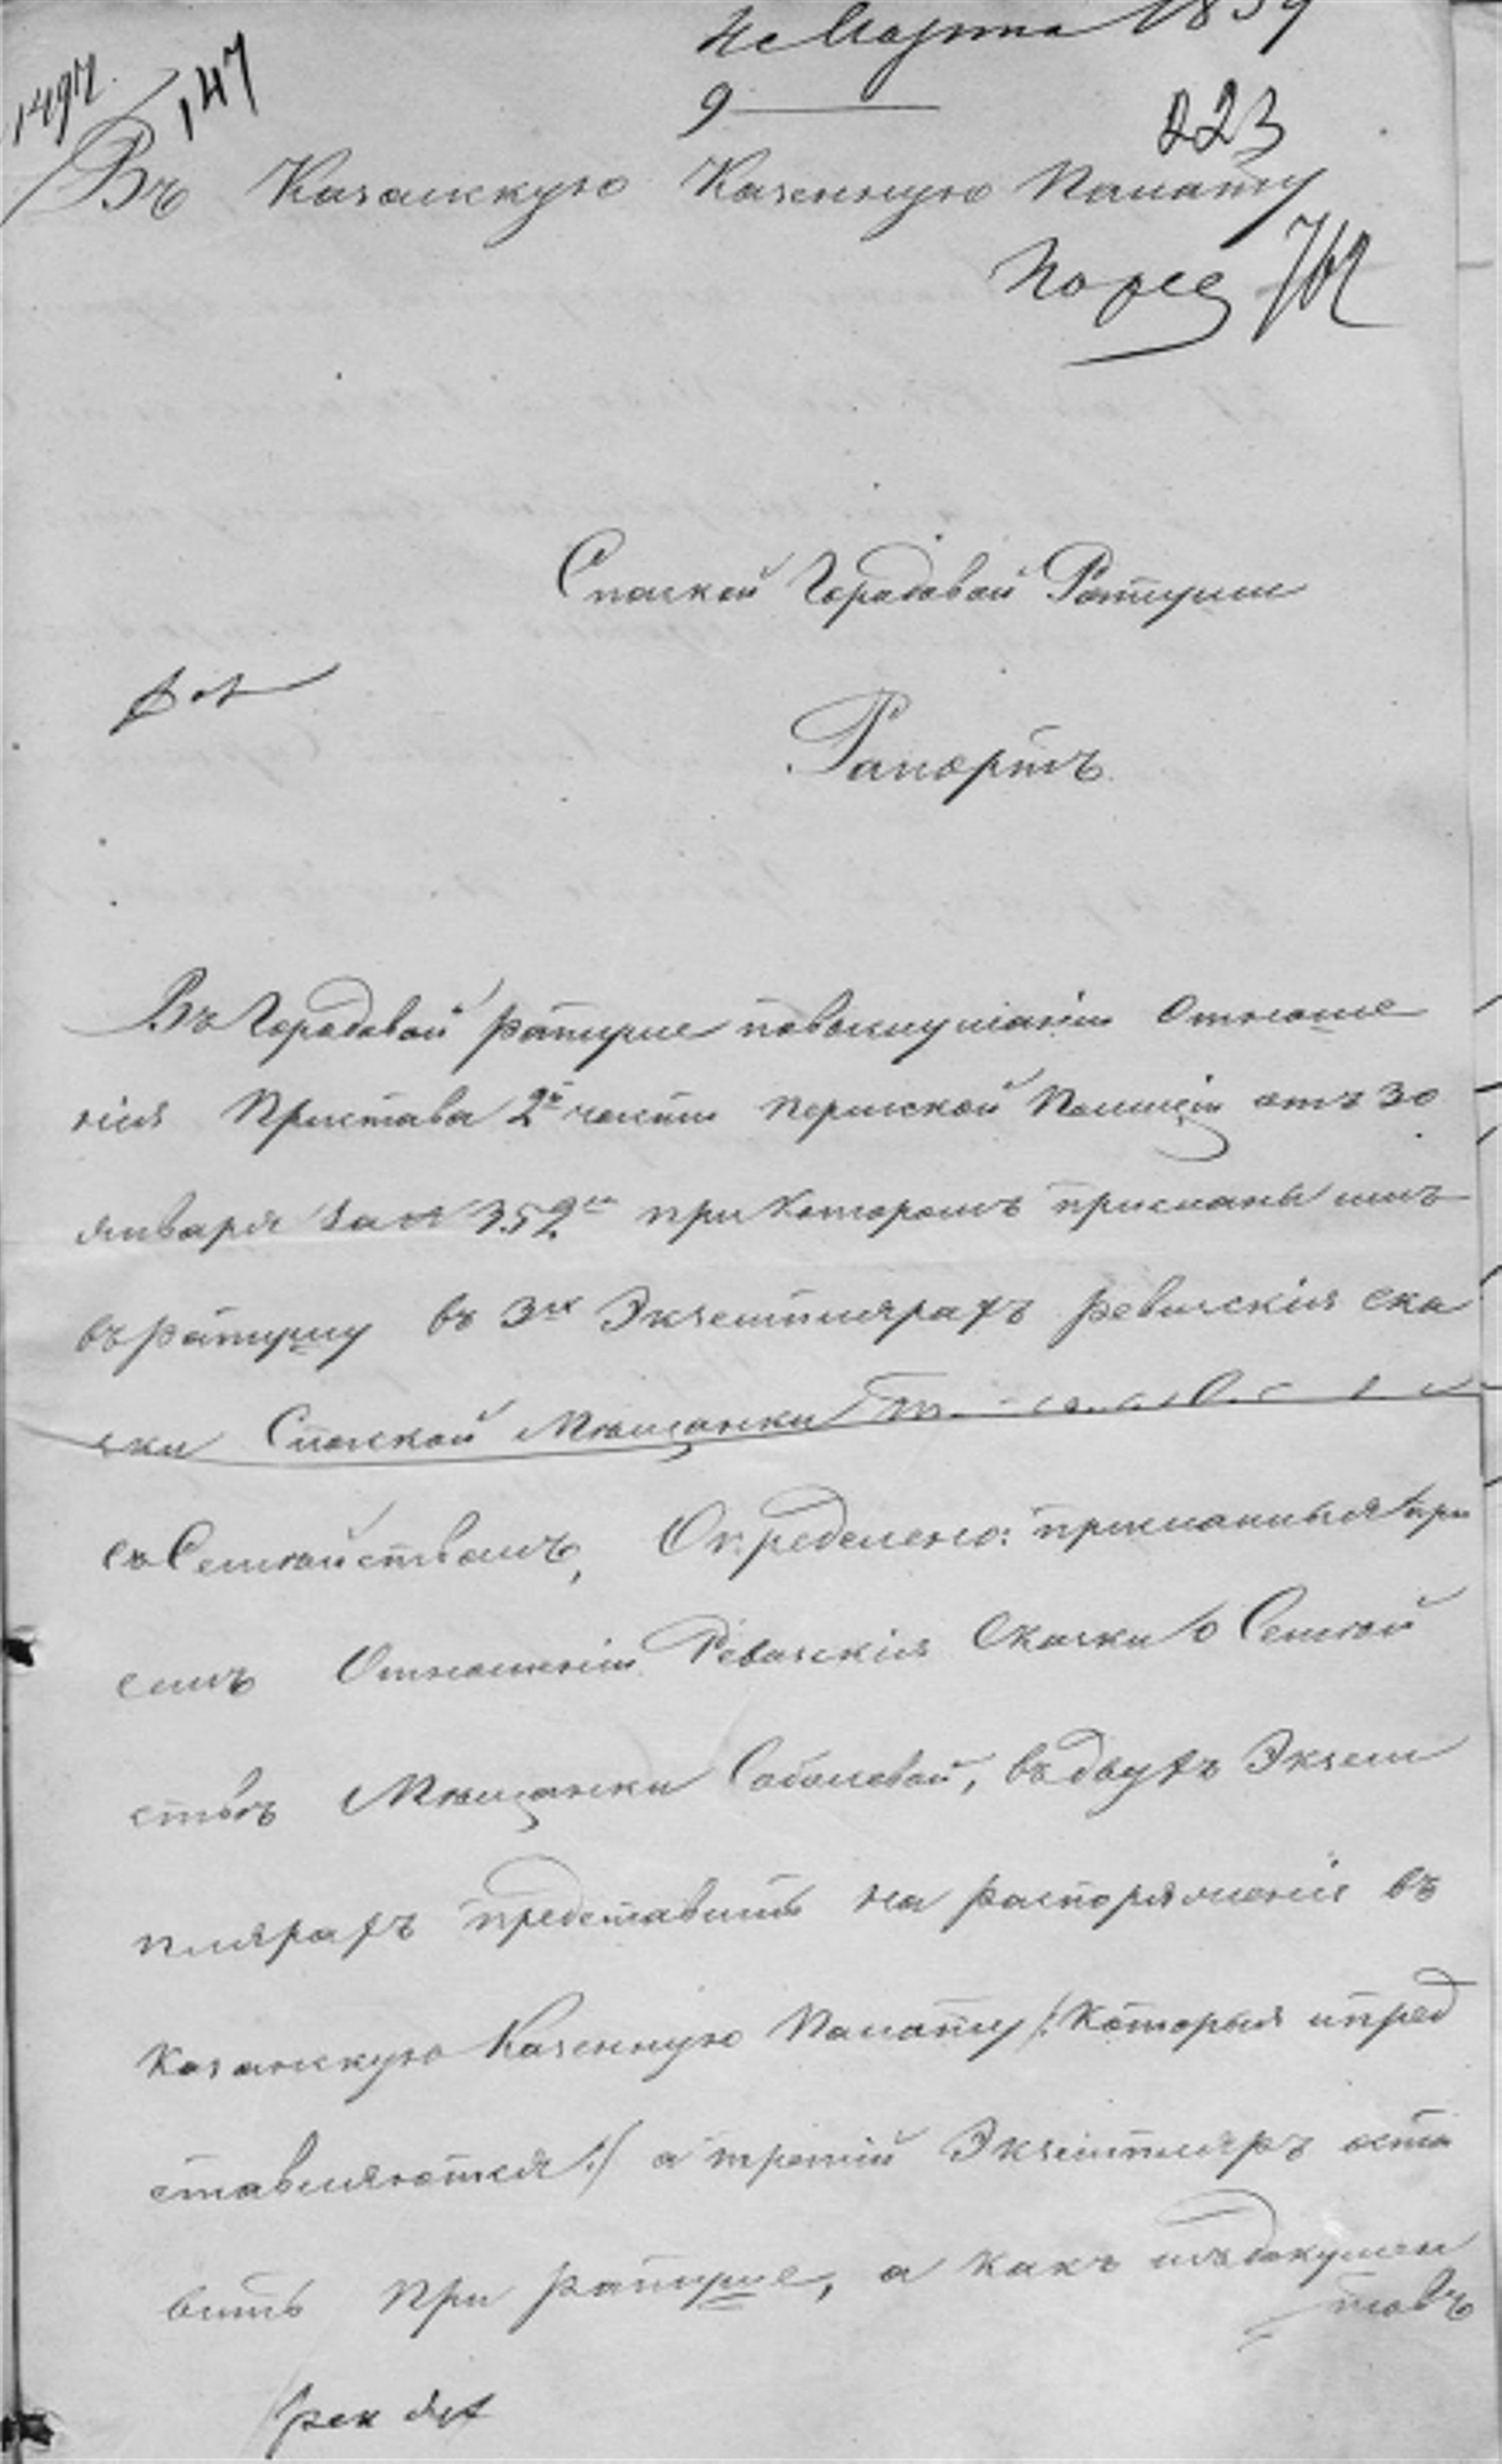 Марта 1859
9
1497
147
223
Въ Казанскую Казенную Палату
Спаской Городовой Ратуши
Рапортъ
Въ Городовой ратуше повыслушаніи Отноше
нія Пристава 2й части Пермской Полиціи отъ 30
января за № 352м при Которомъ присланы имъ
въ ратушу въ 3хъ Экземплярахъ ревизскія ска
ски Спаской Мѣщанки
съ Семѣйствомъ, Определено: присланныя при
семъ Отношеніи Ревизскія Скаски о Семѣй
ствѣ Мѣщанки Соболевой, въ двухъ Экзем
плярахъ представить на распоряженіе въ
Казанскую Казенную Палату /:Которыя и пред
ставляются:/ а третій Экземпляръ оста
вить при ратуше, а какъ изъ докумен
товъ